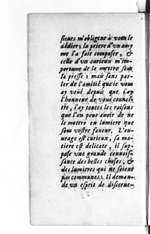 sieurs m'obligent à vous le
dédier, la priere d'un amy
me l'a fait composer, &
celle d'un curieux m'im-
portune de le mettre sous
la presse : mais sans par-
ler de l'amitié que ie vous
ay voüé depuis que i'ay
l'honneur de vous connoi-
tre, i'ay toutes les raisons
que l'on peut avoir de ne
le mettre en lumiere que
sous vostre faveur. L'ou-
urage est curieux, sa ma-
tiere est delicate, il sup-
pose une grande connoiss-
sance des belles choses, &
des lumieres qui ne soient
pas communes. Il deman-
de un esprit de discerne-